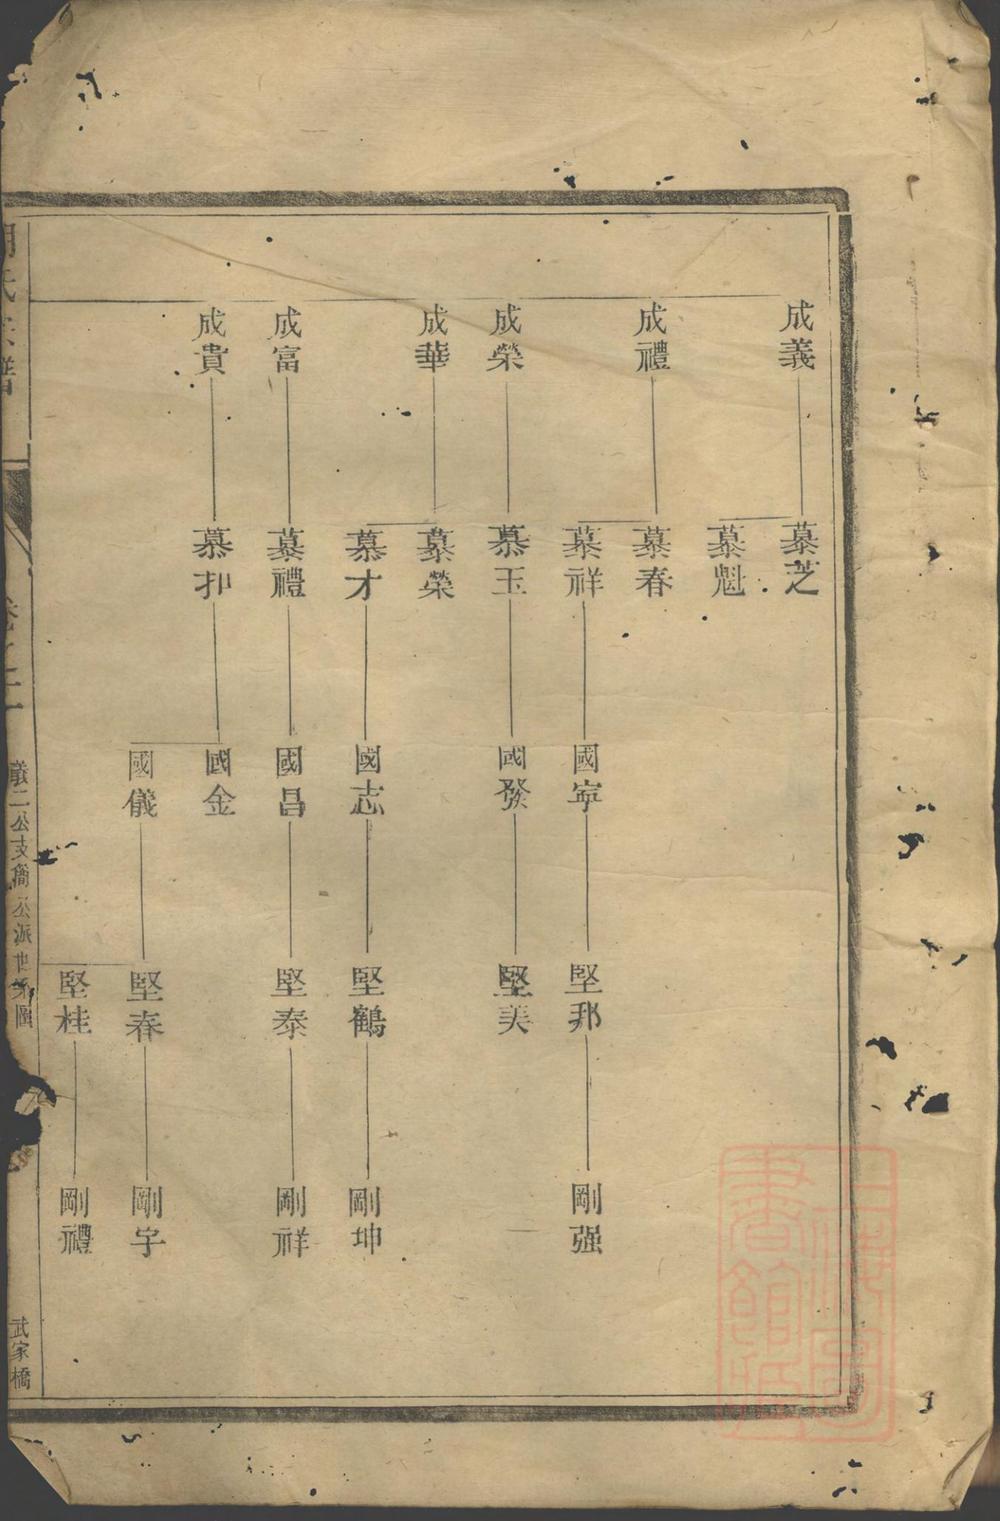 成義
成禮
成榮
成華
成富
成貴
慕芝
慕魁
慕春
慕祥
慕玉
慕榮
慕才
慕禮
慕
國寧
國發
國志
國昌
國金
國儀
堅邦
堅美
堅鶴
堅泰
堅春
堅桂
剛强
剛坤
剛祥
剛宇
剛禮
氏宗譜
卷之二
儀二公支簡公派世系圖
武家橋
上海圖
書館藏